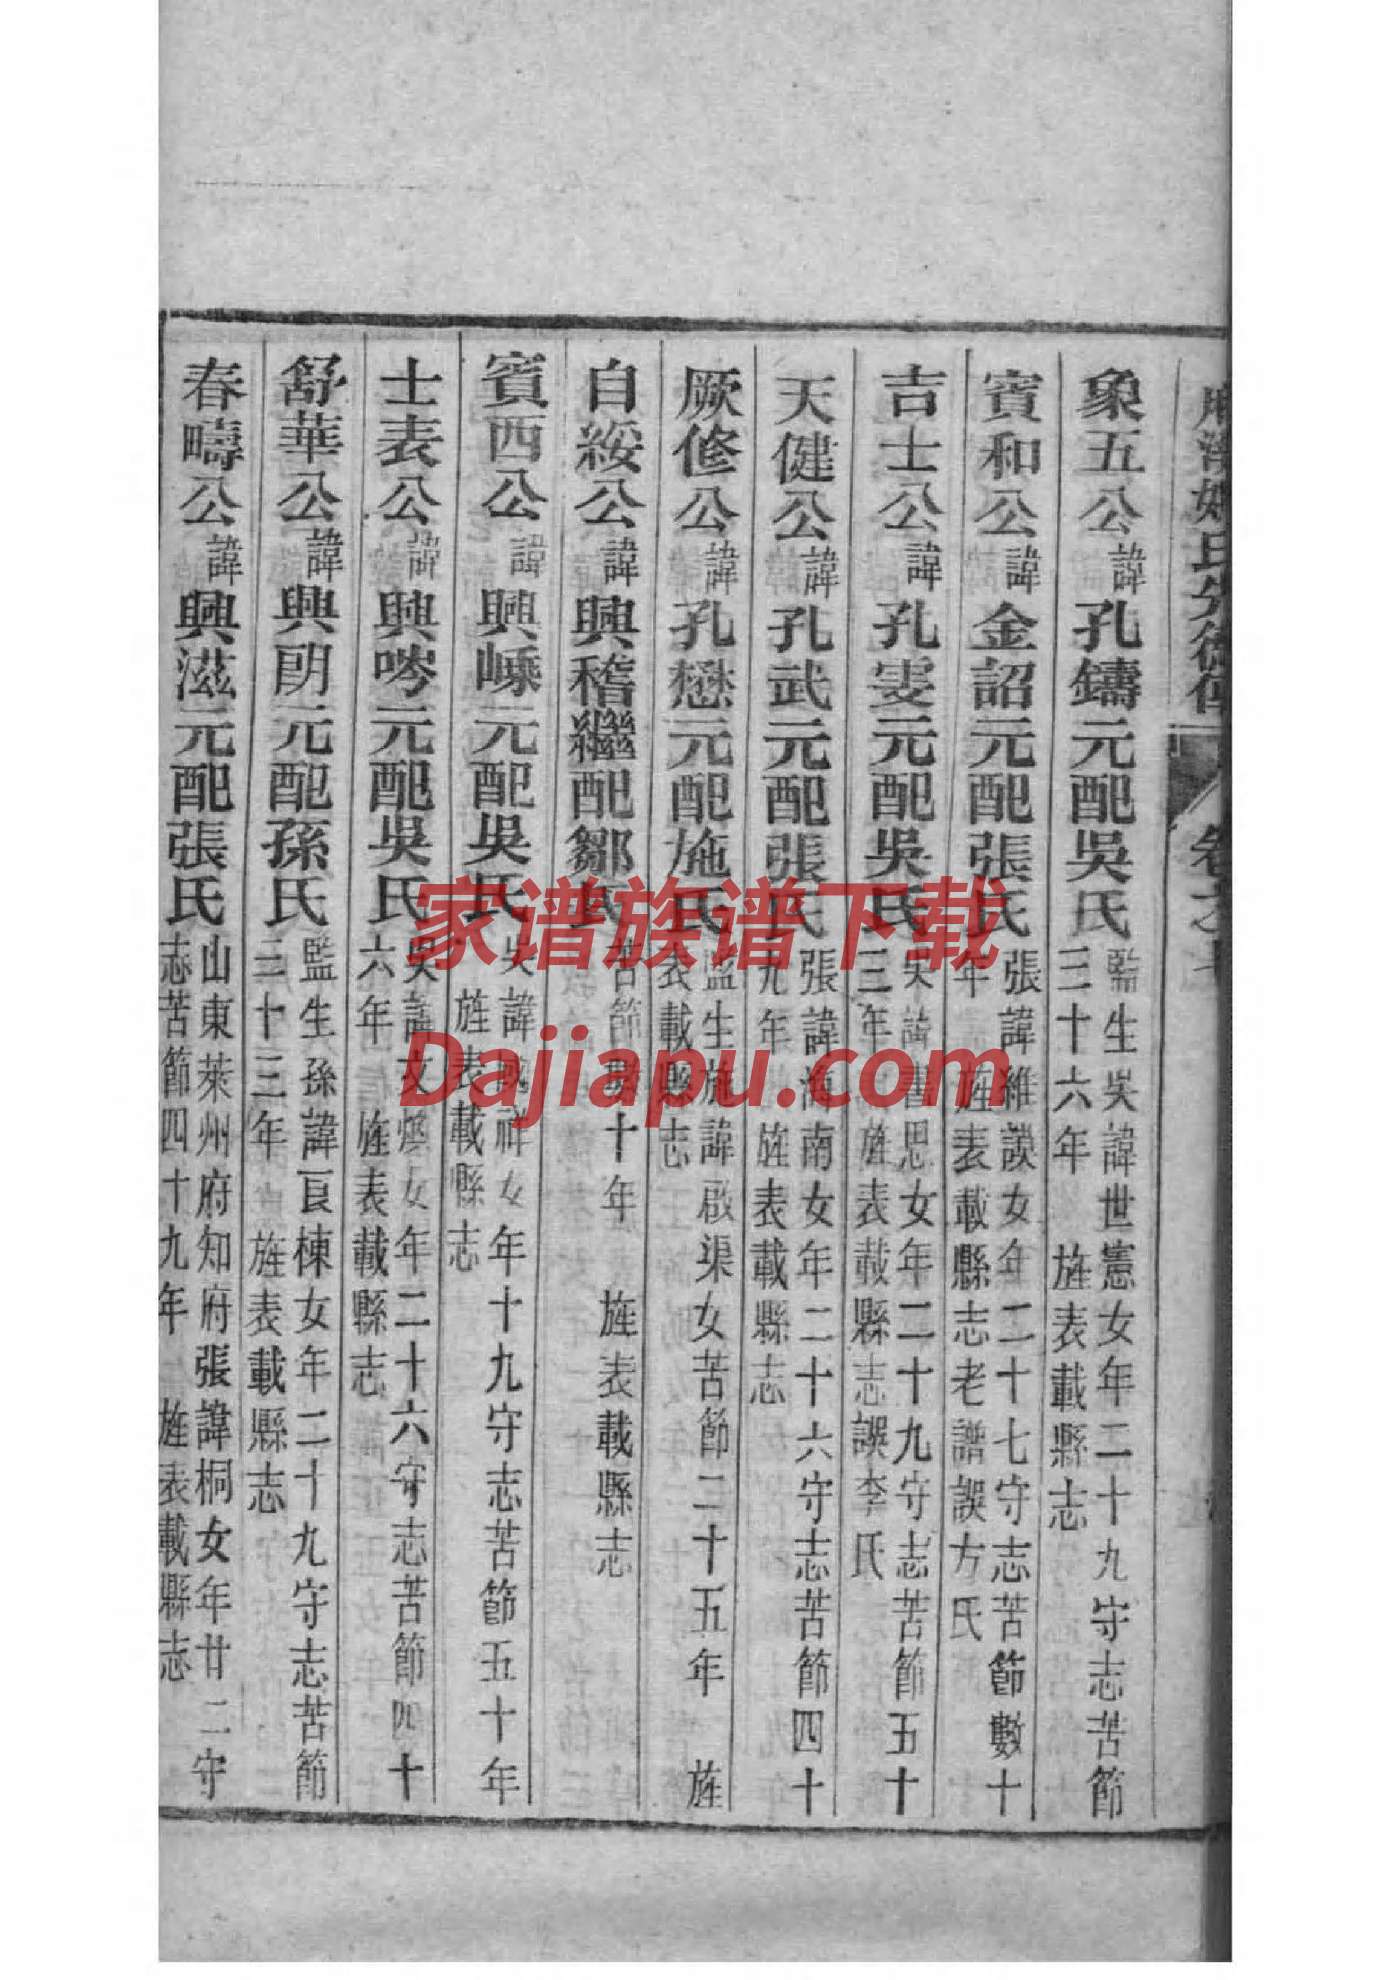 象五公諱孔鑄元配吳氏監生吳諱世憲女年二十九守志苦節三十六年 旌表載縣志
賓和公諱金詔元配張氏張諱維謨女年二十七守志苦節數十年 旌表載縣志老譜誤方氏
吉士公諱孔雯元配吳氏吳諱書思女年二十九守志苦節五十三年 旌表載縣志誤李氏
天健公諱孔武元配張氏張諱海南女年二十六守志苦節四十九年 旌表載縣志
厥修公諱孔懋元配施氏監生施諱啟渠女苦節二十五年 旌表載縣志
自綏公諱興稽繼配鄒氏苦節 十年 旌表載縣志
賓西公諱興嵊元配吳氏吳諱 祥女年十九守志苦節五十年 旌表載縣志
士表公諱興吟元配吳氏吳諱文煥女年二十六守志苦節四十六年 旌表載縣志
舒華公諱興朗元配孫氏監生孫諱良棟女年二十九守志苦節三十三年 旌表載縣志
春疇公諱興滋元配張氏山東萊州府知府張諱桐女年廿二守志苦節四十九年 旌表載縣志
家谱族谱下载
Dajiapu.com